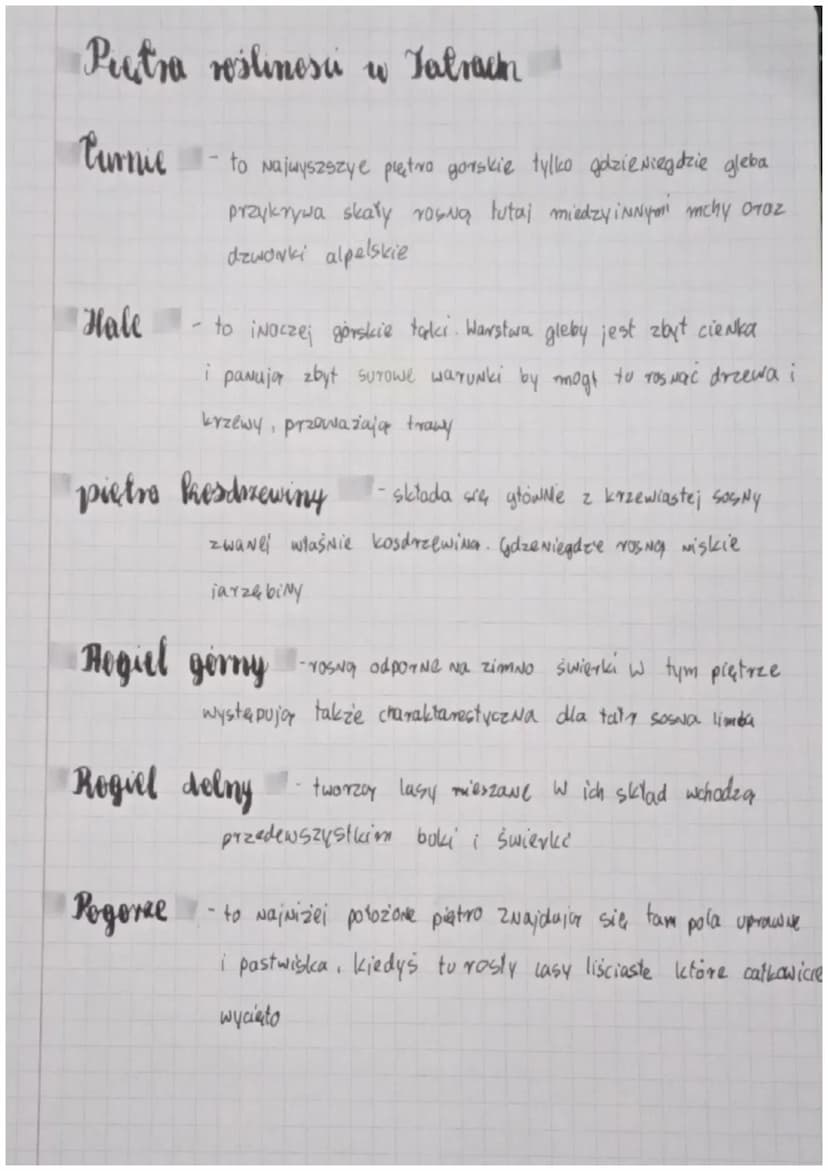 Piętra roślinosci w Tatrach
Turnie - to najwyszszye piętro gorskie tylko gdzieniegdzie gleba
przykrywa skały rosną tutaj miedzyinnymi mchy oraz
dzwonki alpelskie
Hale - to inaczej górskie łąki. Warstwa gleby jest zbyt cienka
i panują zbyt surowe warunki by mogł tu rosnąć drzewa i
krzewy, przeważają trawy
piętro kosdrzewiny - składa się głównie z krzewiastej sosny
zwanej właśnie kosdrzewiną. Gdzeniegdzie rosną niskie
jarzębiny
Regiel górny - rosną odporne na zimno świerki w tym piętrze
występują także charakterestyczna dla tatr sosna limba
Regiel dolny - tworzą lasy mieszane w ich skład wchodzą
przedewszystkim buki i świerki
Pogorze - to najniżej położone piętro znajdują się tam pola uprawne
i pastwiska, kiedyś tu rosły lasy liściaste które całkowicie
wycięto